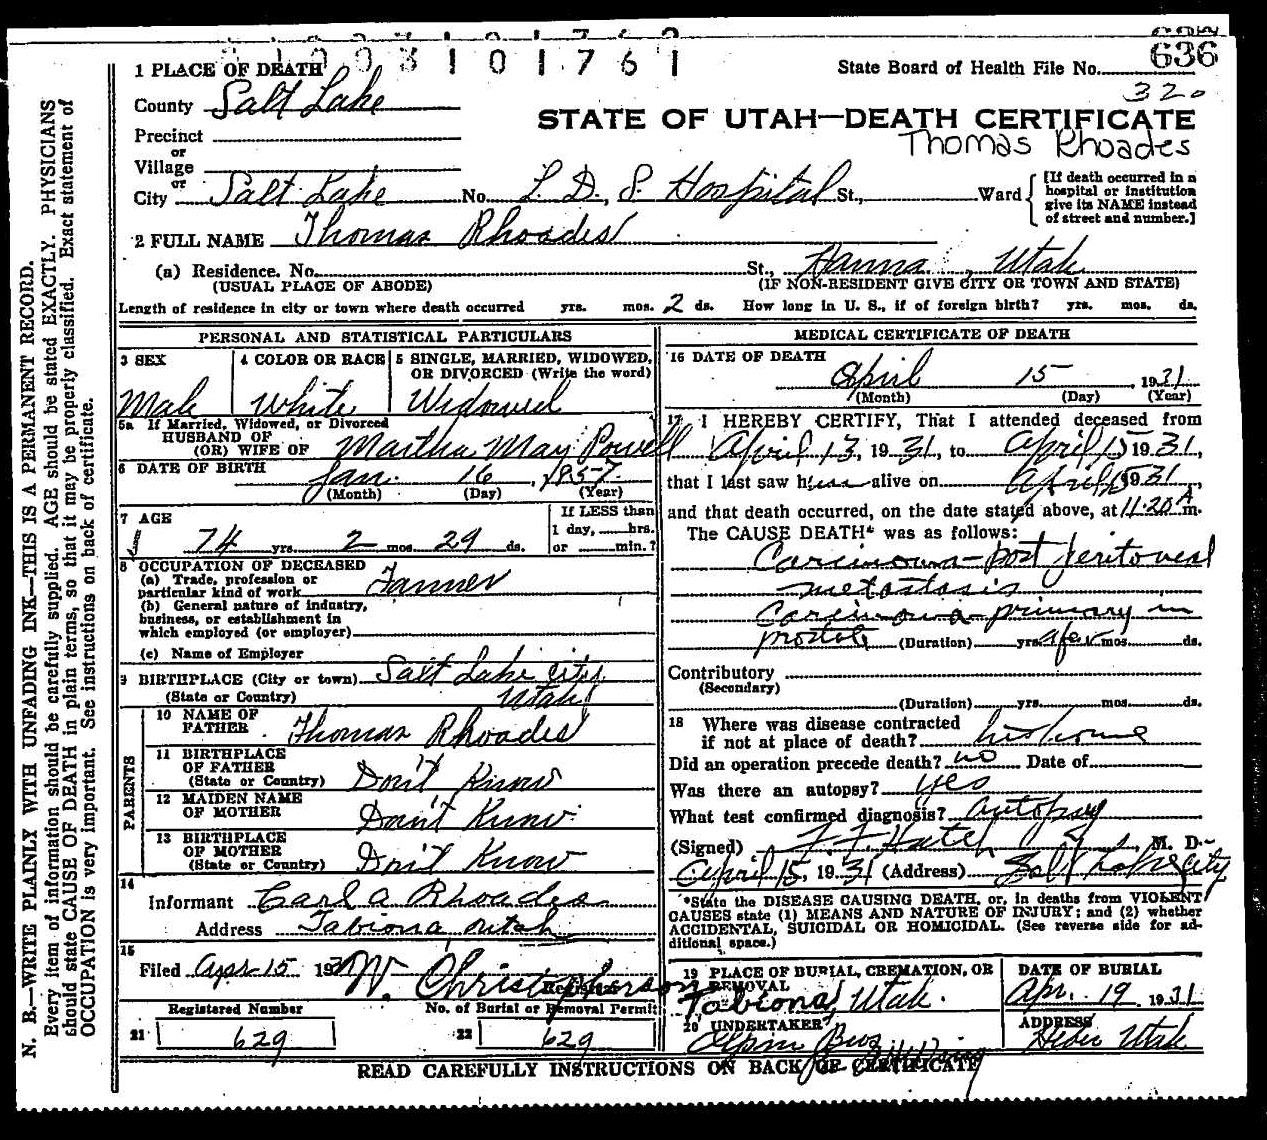 1003101761
State Board of Health File No. 636
320
1 PLACE OF DEATH
County Salt Lake
STATE OF UTAH—DEATH CERTIFICATE
Precinct
Thomas Rhoades
or
Village
or
City Salt Lake No. L. D. S. Hospital St., Ward
[If death occurred in a hospital or institution give its NAME instead of street and number.]
2 FULL NAME Thomas Rhoades
(a) Residence. No. St., Hanna, Utah
(USUAL PLACE OF ABODE) (IF NON-RESIDENT GIVE CITY OR TOWN AND STATE)
Length of residence in city or town where death occurred yrs. mos. 2 ds. How long in U. S., if of foreign birth? yrs. mos. ds.
PERSONAL AND STATISTICAL PARTICULARS
3 SEX 4 COLOR OR RACE 5 SINGLE, MARRIED, WIDOWED,
OR DIVORCED (Write the word)
Male White Widowed
5a If Married, Widowed, or Divorced
HUSBAND OF
(OR) WIFE OF Martha May Powell
6 DATE OF BIRTH Jan. 16, 1857
(Month) (Day) (Year)
7 AGE If LESS than
1 day, hrs.
74 yrs. 2 mos. 29 ds. or min.?
8 OCCUPATION OF DECEASED
(a) Trade, profession or
particular kind of work Farmer
(b) General nature of industry,
business, or establishment in
which employed (or employer)
(c) Name of Employer
9 BIRTHPLACE (City or town) Salt Lake City
(State or Country) Utah
PARENTS
10 NAME OF
FATHER Thomas Rhoades
11 BIRTHPLACE
OF FATHER
(State or Country) Don't Know
12 MAIDEN NAME
OF MOTHER Don't Know
13 BIRTHPLACE
OF MOTHER
(State or Country) Don't Know
14
Informant Carl A Rhoades
Address Tabiona, Utah
15
Filed Apr 15 1931 W. Christopherson
Registrar
Registered Number No. of Burial or Removal Permit
21 629 22 629
MEDICAL CERTIFICATE OF DEATH
16 DATE OF DEATH
April 15, 1931
(Month) (Day) (Year)
17 I HEREBY CERTIFY, That I attended deceased from
April 13, 1931, to April 15 1931,
that I last saw him alive on April 15 1931,
and that death occurred, on the date stated above, at 11:20 A m.
The CAUSE DEATH* was as follows:
Carcinoma - post peritoneal
metastasis
Carcinoma primary in
prostate (Duration) yrs. a few mos. ds.
Contributory
(Secondary)
(Duration) yrs. mos. ds.
18 Where was disease contracted
if not at place of death? his home
Did an operation precede death? no Date of
Was there an autopsy? yes
What test confirmed diagnosis? autopsy
(Signed) F F Hatch, M. D.
April 15, 1931 (Address) Salt Lake City
*State the DISEASE CAUSING DEATH, or, in deaths from VIOLENT
CAUSES state (1) MEANS AND NATURE OF INJURY; and (2) whether
ACCIDENTAL, SUICIDAL OR HOMICIDAL. (See reverse side for ad-
ditional space.)
19 PLACE OF BURIAL, CREMATION, OR DATE OF BURIAL
REMOVAL
Tabiona, Utah. Apr. 19 1931
20 UNDERTAKER ADDRESS
Bros Heber Utah
READ CAREFULLY INSTRUCTIONS ON BACK OF CERTIFICATE
N. B.—WRITE PLAINLY WITH UNFADING INK—THIS IS A PERMANENT RECORD.
Every item of information should be carefully supplied. AGE should be stated EXACTLY. PHYSICIANS
should state CAUSE OF DEATH in plain terms, so that it may be properly classified. Exact statement of
OCCUPATION is very important. See instructions on back of certificate.